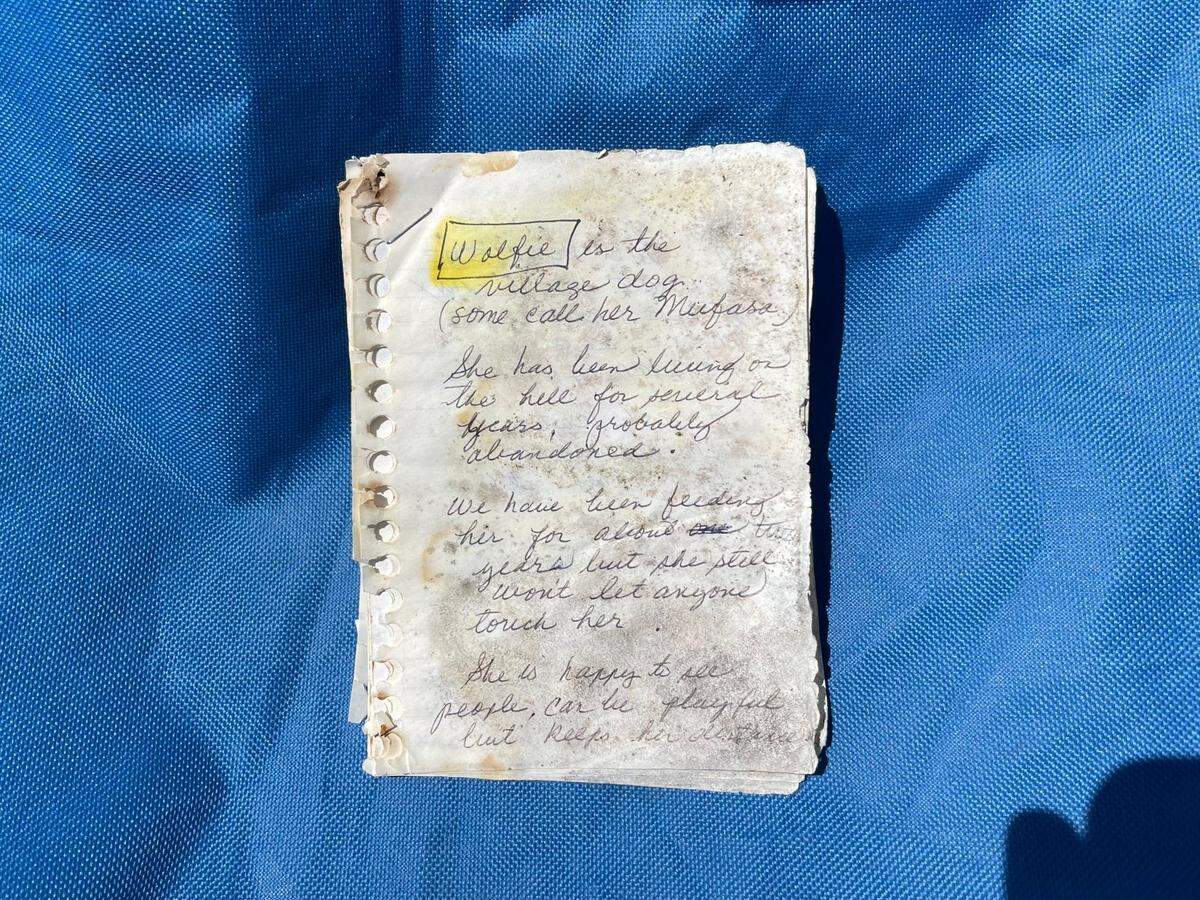 Wolfie is the
village dog.
(some call her Mufasa)
She has been living on
the hill for several
years, probably
abandoned.
We have been feeding
her for about one two
years but she still
won't let anyone
touch her.
She is happy to see
people, can be playful
but keeps her distance